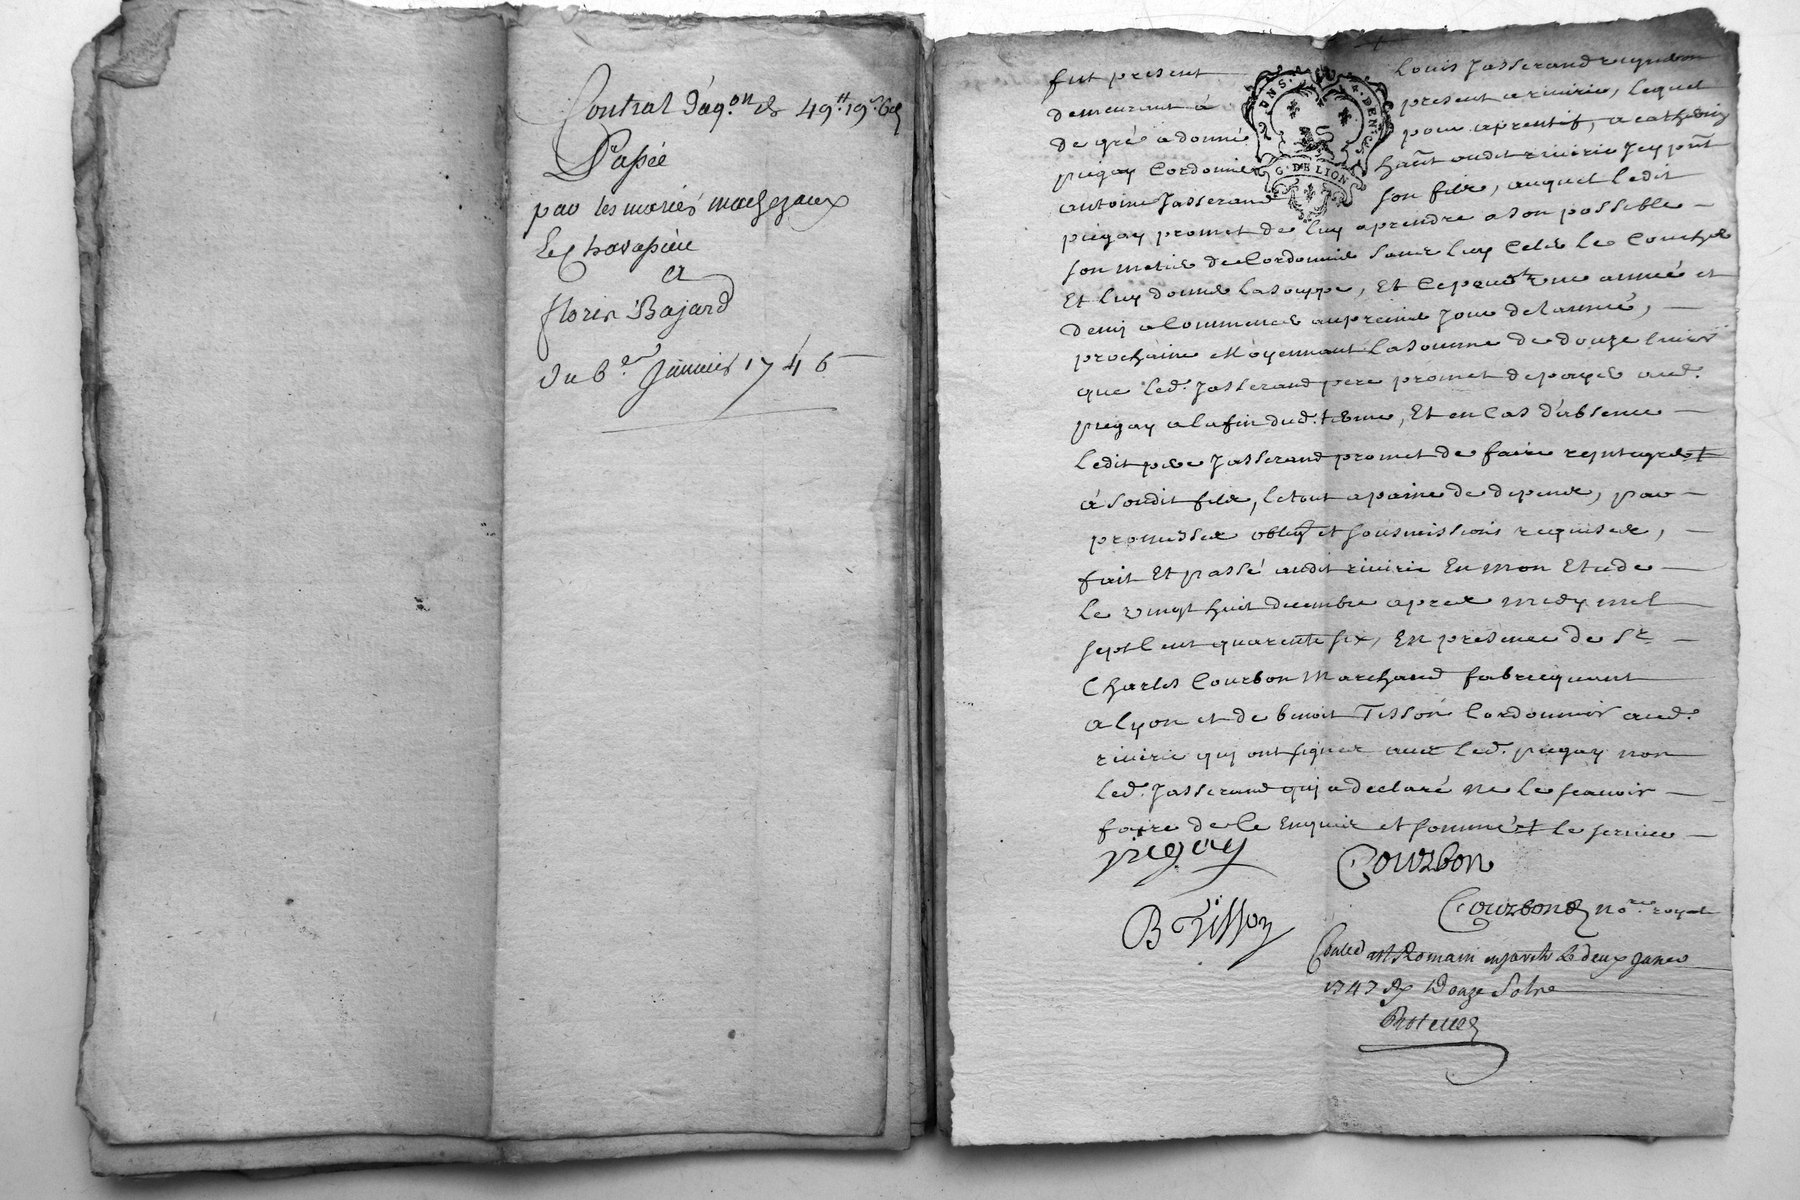 Contrat d'aq.on de 49tt 19s 6d
Passée
par les mariés
Et
florin Bajard
Du 6.e Janvier 1746
fut present Louis Jasserand vigneron
demeurant à present a riverie, lequel
de gré a donné pour aprentif, a
piegay Cordonnier hant audit riverie Icy pnt
antoine Jasserand son filz, auquel ledit
piegay promet de luy aprendre a son possible
son metier de Cordonnier sans luy Celer
Et luy donner la souppe, Et Ce une année et
demi a Commencer au premier Jour de l'année,
prochaine Moyennant la somme de douze livres
que led. Jasserand pere promet de payer aud.
piegay a la fin dud. terme, Et en Cas d'absence
ledit pere Jasserand promet de faire reyntegrer
à sondit filz, le tout a paine de depens, par
promesses oblig et soumissions requises,
fait Et passé audit riverie En mon Etude
le vingt huit decembre apres midy mil
sept Cent quarente six, En présence de Sr
Charles Courbon Marchand fabriquant
a lyon et de benoit Tisson Cordonnier aud.
riverie qui ont signer avec led. piegay non
led. Jasserand qui a declaré ne le scavoir
faire de ce Enquis et sommé
UN S. 4. DEN.
G. DE LION
piegay Courbon
B Tisson Courbon no.re royal
Romain le deux Janer
1747 Douze Sols